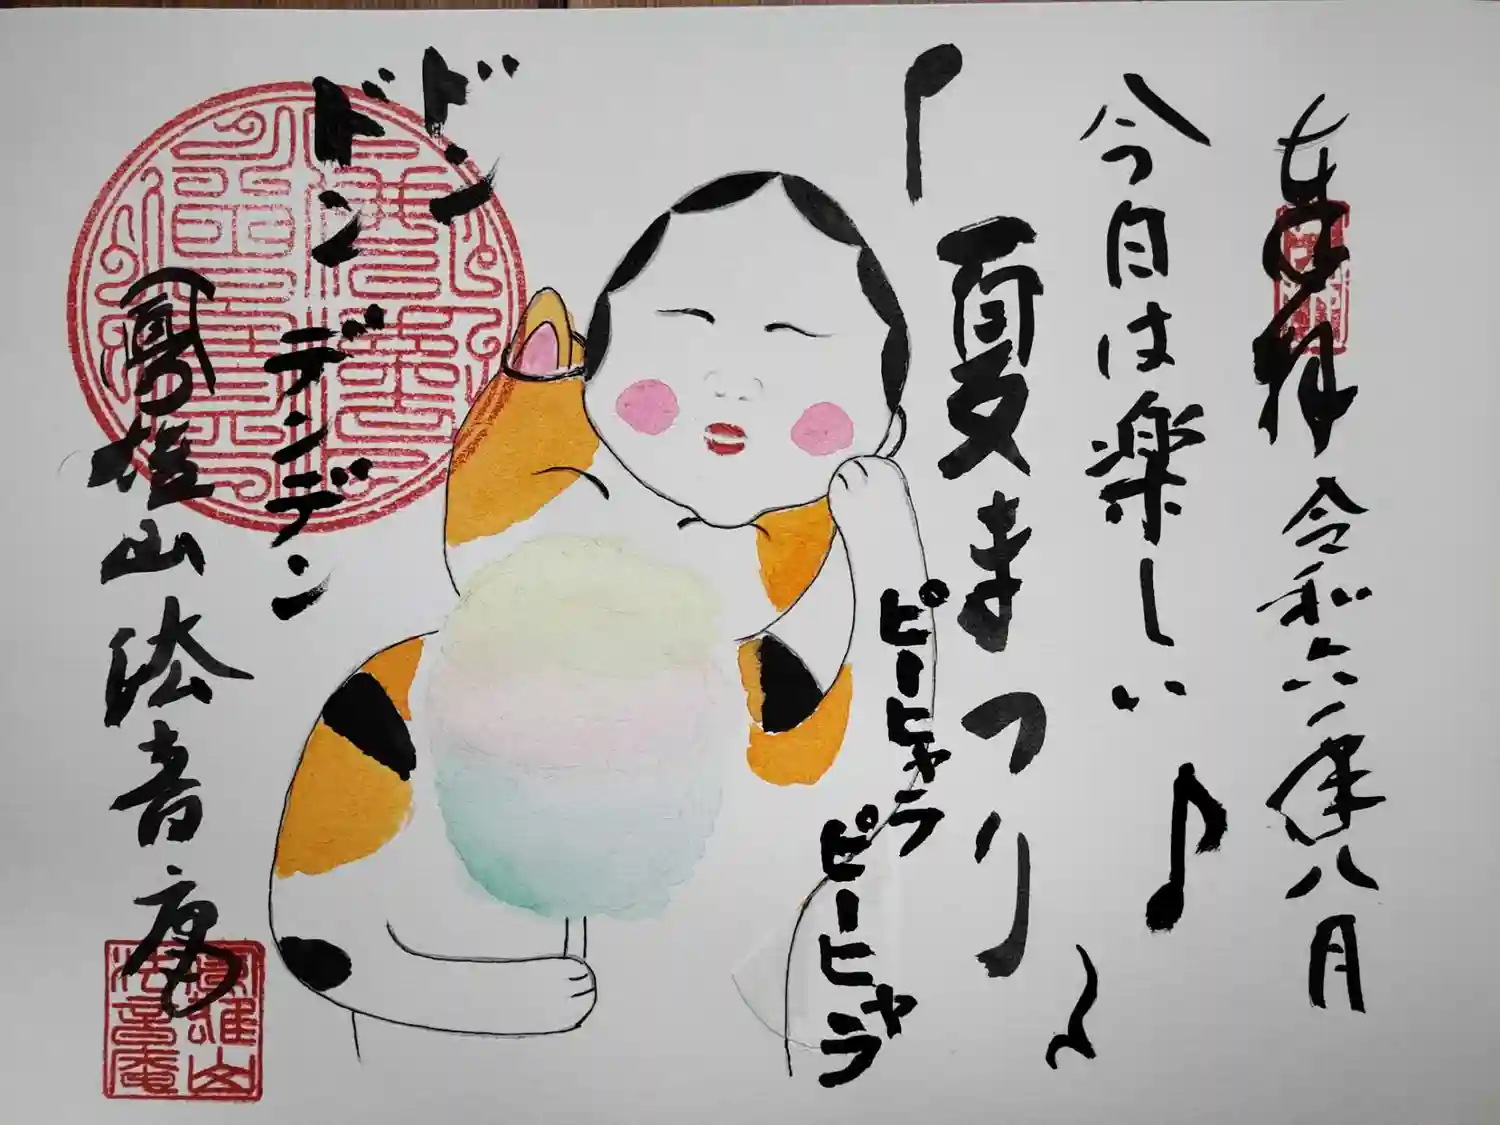 奉拝 令和六年八月
今日は楽しい♪
夏まつり〜
ピーヒャラ
ピーヒャラ
ドーン
ドン
デンデン
鳳雄山 法音庵
鳳雄山
法音庵